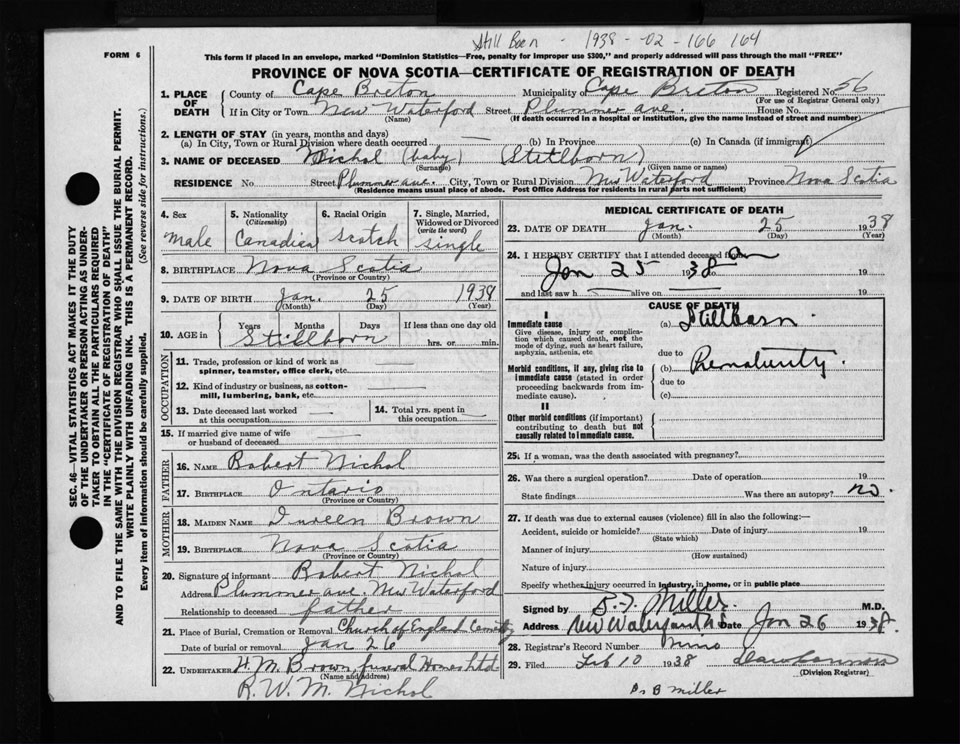 Still Born - 1938 - 02 - 166 164
FORM 6
This form if placed in an envelope, marked "Dominion Statistics—Free, penalty for improper use $300," and properly addressed will pass through the mail "FREE"
PROVINCE OF NOVA SCOTIA—CERTIFICATE OF REGISTRATION OF DEATH
1. PLACE OF DEATH County of Cape Breton Municipality of Cape Breton Registered No. 56
(For use of Registrar General only)
If in City or Town New Waterford Street Plummer ave. House No.
(Name) (If death occurred in a hospital or institution, give the name instead of street and number)
2. LENGTH OF STAY (in years, months and days)
(a) In City, Town or Rural Division where death occurred — (b) In Province (c) In Canada (if immigrant)
3. NAME OF DECEASED Nichol (baby) (Stillborn)
(Surname) (Given name or names)
RESIDENCE No. Street Plummer ave. City, Town or Rural Division New Waterford Province Nova Scotia
(Residence means usual place of abode. Post Office Address for residents in rural parts not sufficient)
4. Sex male
5. Nationality (Citizenship) Canadian
6. Racial Origin Scotch
7. Single, Married, Widowed or Divorced (write the word) single
8. BIRTHPLACE Nova Scotia
(Province or Country)
9. DATE OF BIRTH Jan. 25 1938
(Month) (Day) (Year)
10. AGE in Years Months Days If less than one day old
Stillborn hrs. or min.
OCCUPATION
11. Trade, profession or kind of work as spinner, teamster, office clerk, etc. —
12. Kind of industry or business, as cotton-mill, lumbering, bank, etc. —
13. Date deceased last worked at this occupation — 14. Total yrs. spent in this occupation —
15. If married give name of wife or husband of deceased —
FATHER
16. NAME Robert Nichol
17. BIRTHPLACE Ontario
(Province or Country)
MOTHER
18. MAIDEN NAME Inreen Brown
19. BIRTHPLACE Nova Scotia
(Province or Country)
20. Signature of informant Robert Nichol
Address Plummer ave. New Waterford
Relationship to deceased father
21. Place of Burial, Cremation or Removal Church of England Cemetry
Date of burial or removal Jan 26
22. UNDERTAKER H. M. Brown, funeral Homes Ltd.
(Name and Address)
R. W. M. Nichol
MEDICAL CERTIFICATE OF DEATH
23. DATE OF DEATH Jan. 25 1938
(Month) (Day) (Year)
24. I HEREBY CERTIFY that I attended deceased from
Jan 25 1938 19
and last saw h — alive on — 19
CAUSE OF DEATH
I
Immediate cause (a) Stillborn.
Give disease, injury or complication which caused death, not the mode of dying, such as heart failure, asphyxia, asthenia, etc
due to
Morbid conditions, if any, giving rise to immediate cause (stated in order proceeding backwards from immediate cause). (b) Prematurity.
due to
(c)
II
Other morbid conditions (if important) contributing to death but not causally related to immediate cause.
25. If a woman, was the death associated with pregnancy?
26. Was there a surgical operation? Date of operation 19
State findings Was there an autopsy? no.
27. If death was due to external causes (violence) fill in also the following:—
Accident, suicide or homicide? Date of injury 19
(State which)
Manner of injury
(How sustained)
Nature of injury
Specify whether injury occurred in industry, in home, or in public place
Signed by B. F. Miller. M.D.
Address New Waterford N.S. Date Jan 26 1938.
28. Registrar's Record Number Nino
29. Filed Feb 10 1938
(Division Registrar)
Dr B Miller
SEC. 46—VITAL STATISTICS ACT MAKES IT THE DUTY
OF THE UNDERTAKER OR PERSON ACTING AS UNDER-
TAKER TO OBTAIN ALL THE PARTICULARS REQUIRED
IN THE "CERTIFICATE OF REGISTRATION OF DEATH"
AND TO FILE THE SAME WITH THE DIVISION REGISTRAR WHO SHALL ISSUE THE BURIAL PERMIT.
WRITE PLAINLY WITH UNFADING INK. THIS IS A PERMANENT RECORD.
Every item of information should be carefully supplied. (See reverse side for instructions.)